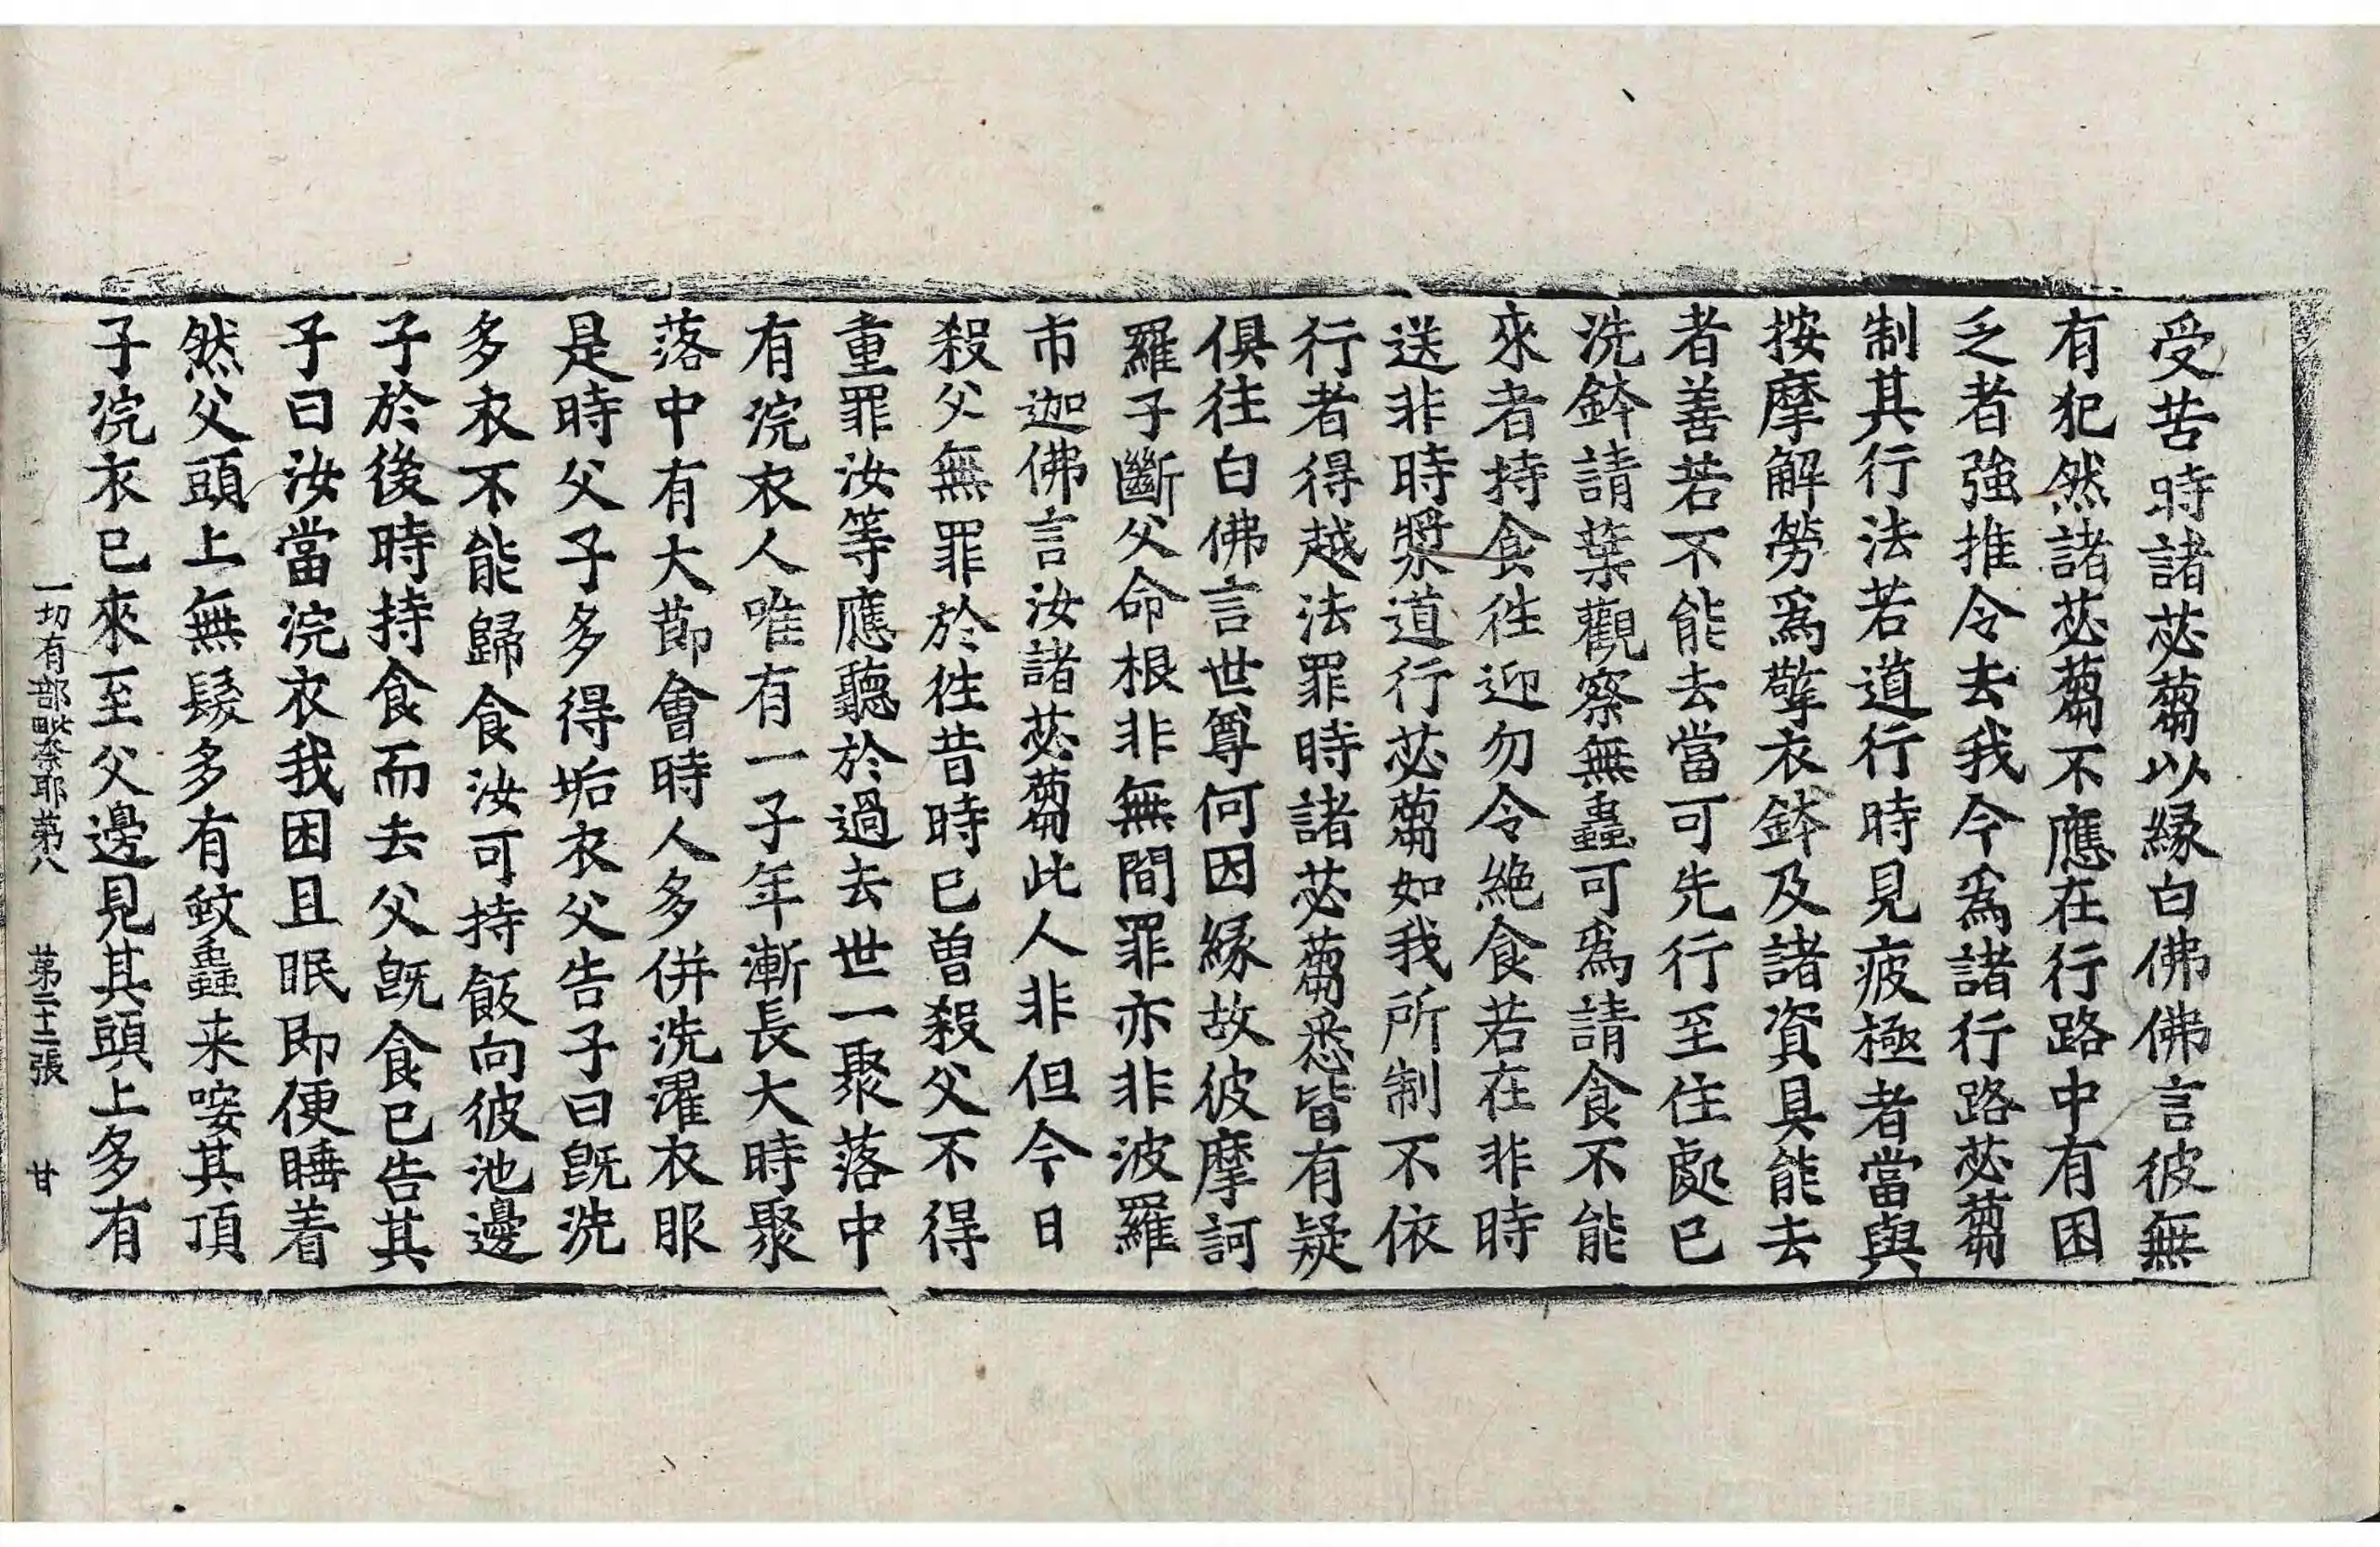 受苦時諸苾蒭以緣白佛佛言彼無
有犯然諸苾蒭不應在行路中有困
乏者強推令去我今爲諸行路苾蒭
制其行法若道行時見疲極者當與
按摩解勞爲擎衣鉢及諸資具能去
者善若不能去當可先行至住處已
洗鉢請葉觀察無蟲可爲請食不能
來者持食往迎勿令絶食若在非時
送非時漿道行苾蒭如我所制不依
行者得越法罪時諸苾蒭悉皆有疑
俱往白佛言世尊何因緣故彼摩訶
羅子斷父命根非無間罪亦非波羅
市迦佛言汝諸苾蒭此人非但今日
殺父無罪於徃昔時已曽殺父不得
重罪汝等應聽於過去世一聚落中
有浣衣人唯有一子年漸長大時聚
落中有大莭會時人多併洗濯衣服
是時父子多得垢衣父告子曰旣洗
多衣不能歸食汝可持飯向彼池邊
子於後時持食而去父旣食已告其
子曰汝當浣衣我困且眠即便睡着
然父頭上無髮多有蚊蟲来唼其頂
子浣衣已來至父邊見其頭上多有
一切有部毗奈耶苐八 苐二十二張 甘